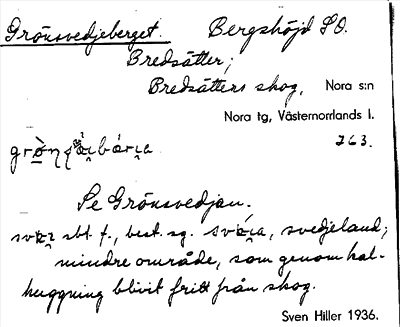 Grönsvedjeberget. Bergshöjd SO.
Bredsätter,
Bredsätters skog, Nora s:n
Nora tg, Västernorrlands l.
263.
Se Grönsvedjan.
sbt. f., best. sg. svedjeland;
mindre område, som genom kal-
huggning blivit fritt från skog.
Sven Hiller 1936.